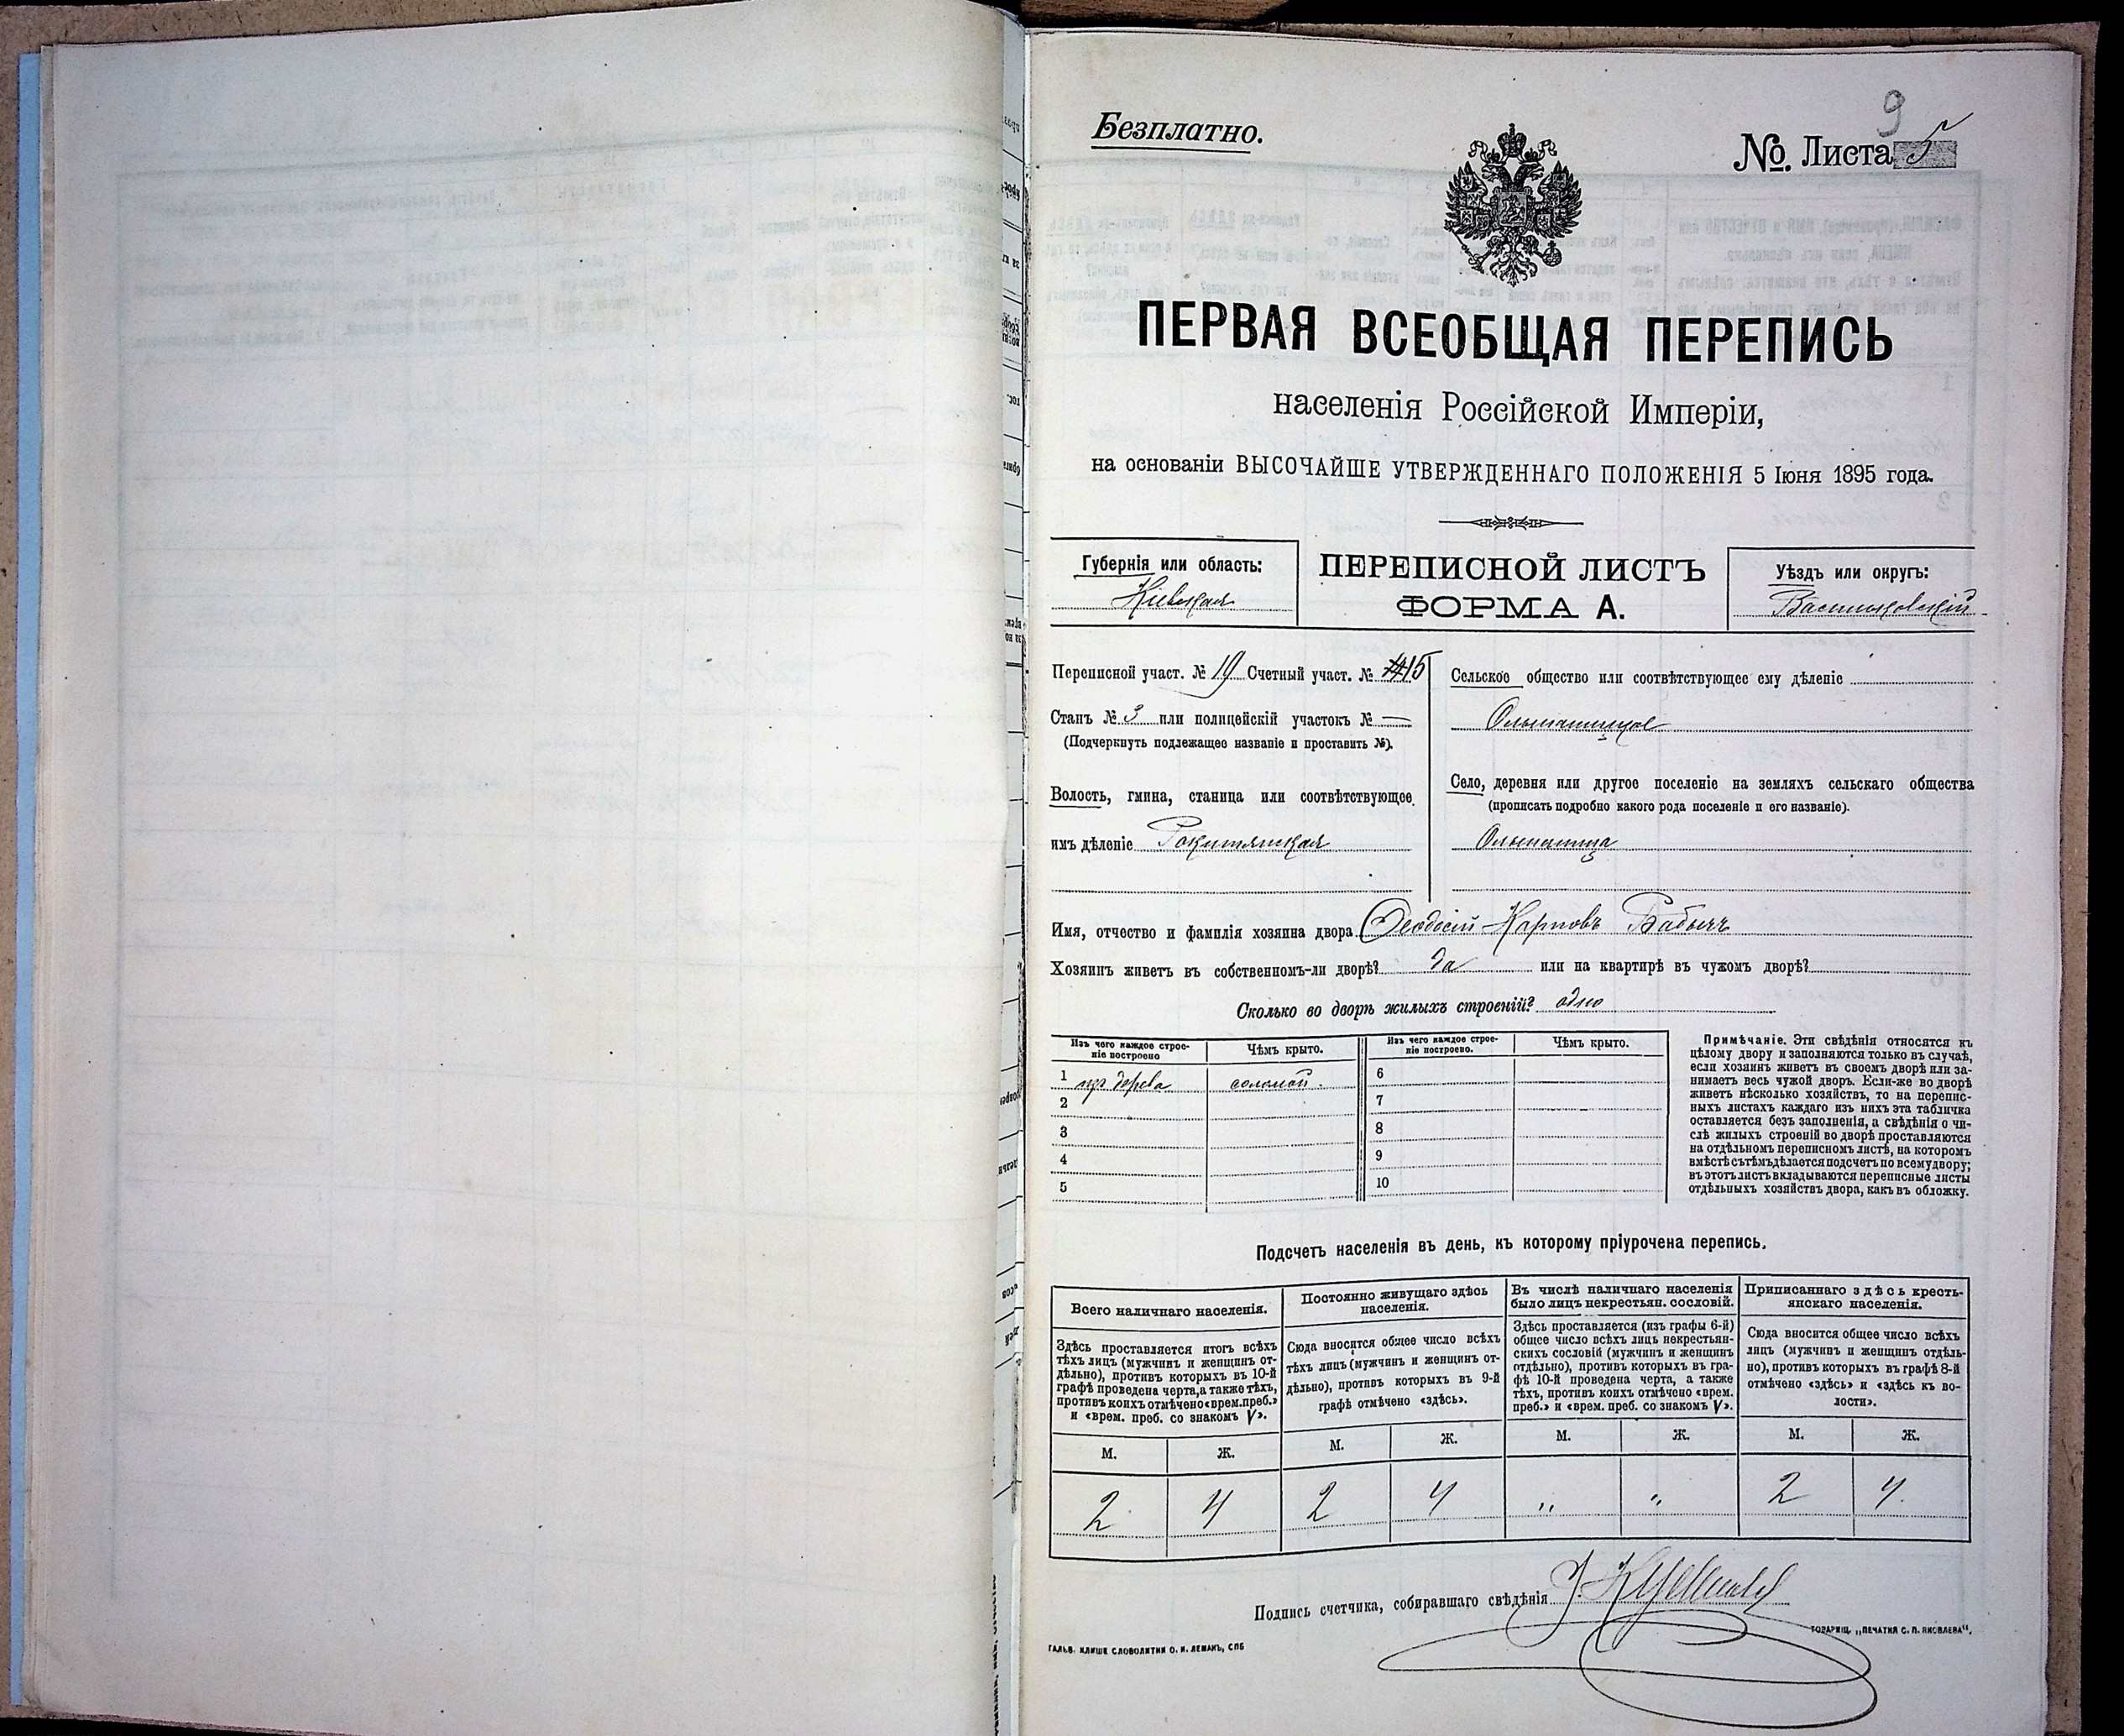 9
Безплатно.
№. Листа 5
ПЕРВАЯ ВСЕОБЩАЯ ПЕРЕПИСЬ
населенія Россійской Имперіи,
на основаніи ВЫСОЧАЙШЕ УТВЕРЖДЕННАГО ПОЛОЖЕНІЯ 5 Іюня 1895 года.
Губернія или область:
Кіевская
ПЕРЕПИСНОЙ ЛИСТЪ
ФОРМА А.
Уѣздъ или округъ:
Васильковскій
Переписной участ. № 19 Счетный участ. № 15
Станъ № 3 или полицейскій участокъ № —
(Подчеркнуть подлежащее названіе и проставить №).
Волость, гмина, станица или соотвѣтствующее
имъ дѣленіе Рокитянская
Сельское общество или соотвѣтствующее ему дѣленіе
Ольшаницкое
Село, деревня или другое поселеніе на земляхъ сельскаго общества
(прописать подробно какого рода поселеніе и его названіе).
Ольшаница
Имя, отчество и фамилія хозяина двора Феодосій Карповъ Бабичъ
Хозяинъ живетъ въ собственномъ-ли дворѣ? да или на квартирѣ въ чужомъ дворѣ?
Сколько во дворѣ жилыхъ строеній? одно
Изъ чего каждое строе-
ніе построено
Чѣмъ крыто.
Изъ чего каждое строе-
ніе построено.
Чѣмъ крыто.
1 изъ дерева соломой. 6
2 7
3 8
4 9
5 10
Примѣчаніе. Эти свѣдѣнія относятся къ
цѣлому двору и заполняются только въ случаѣ,
если хозяинъ живетъ въ своемъ дворѣ или за-
нимаетъ весь чужой дворъ. Если-же во дворѣ
живетъ нѣсколько хозяйствъ, то на перепис-
ныхъ листахъ каждаго изъ нихъ эта табличка
оставляется безъ заполненія, а свѣдѣнія о чи-
слѣ жилыхъ строеній во дворѣ проставляются
на отдѣльномъ переписномъ листѣ, на которомъ
вмѣстѣ съ тѣмъ дѣлается подсчетъ по всему двору;
въ этотъ листъ вкладываются переписные листы
отдѣльныхъ хозяйствъ двора, какъ въ обложку.
Подсчетъ населенія въ день, къ которому пріурочена перепись.
Всего наличнаго населенія.
Здѣсь проставляется итогъ всѣхъ
тѣхъ лицъ (мужчинъ и женщинъ от-
дѣльно), противъ которыхъ въ 10-й
графѣ проведена черта, а также тѣхъ,
противъ коихъ отмѣчено «врем. преб.»
и «врем. преб. со знакомъ V».
Постоянно живущаго здѣсь
населенія.
Сюда вносится общее число всѣхъ
тѣхъ лицъ (мужчинъ и женщинъ от-
дѣльно), противъ которыхъ въ 9-й
графѣ отмѣчено «здѣсь».
Въ числѣ наличнаго населенія
было лицъ некрестьян. сословій.
Здѣсь проставляется (изъ графы 6-й)
общее число всѣхъ лицъ некрестьян-
скихъ сословій (мужчинъ и женщинъ
отдѣльно), противъ которыхъ въ гра-
фѣ 10-й проведена черта, а также
тѣхъ, противъ коихъ отмѣчено «врем.
преб.» и «врем. преб. со знакомъ V».
Приписаннаго здѣсь кресть-
янскаго населенія.
Сюда вносится общее число всѣхъ
лицъ (мужчинъ и женщинъ отдѣль-
но), противъ которыхъ въ графѣ 8-й
отмѣчено «здѣсь» и «здѣсь къ во-
лости».
М. Ж. М. Ж. М. Ж. М. Ж.
2 4 2 4 " " 2 4
Подпись счетчика, собиравшаго свѣдѣнія
ГАЛЬВ. КЛИШЕ СЛОВОЛИТНИ О. И. ЛЕМАНЪ, СПБ
ТОВАРИЩ. „ПЕЧАТНЯ С. П. ЯКОВЛЕВА“.